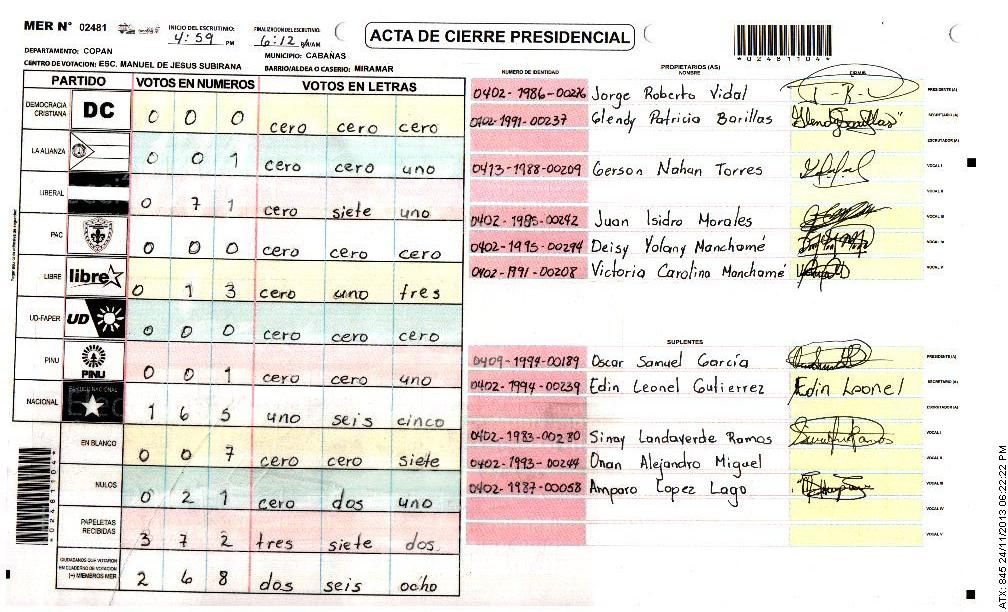 MER N° 02481
INICIO DEL ESCRUTINIO: 4:59 PM
FINALIZACION DEL ESCRUTINIO: 6:12
ACTA DE CIERRE PRESIDENCIAL
*02481104*
DEPARTAMENTO: COPAN
MUNICIPIO: CABAÑAS
CENTRO DE VOTACION: ESC. MANUEL DE JESUS SUBIRANA
BARRIO/ALDEA O CASERIO: MIRAMAR
PARTIDO VOTOS EN NUMEROS VOTOS EN LETRAS
DEMOCRACIA CRISTIANA DC 0 0 0 cero cero cero
LA ALIANZA 0 0 1 cero cero uno
LIBERAL 0 7 1 cero siete uno
PAC 0 0 0 cero cero cero
LIBRE libre 0 1 3 cero uno tres
UD-FAPER UD 0 0 0 cero cero cero
PINU PINU 0 0 1 cero cero uno
NACIONAL 1 6 5 uno seis cinco
EN BLANCO 0 0 7 cero cero siete
NULOS 0 2 1 cero dos uno
PAPELETAS RECIBIDAS 3 7 2 tres siete dos.
CIUDADANOS QUE VOTARON EN CUADERNO DE VOTACION (+) MIEMBROS MER 2 6 8 dos seis ocho
*02481104*
NUMERO DE IDENTIDAD PROPIETARIOS (AS) NOMBRE FIRMA
0402-1986-00276 Jorge Roberto Vidal PRESIDENTE(A)
0402-1991-00237 Glendy Patricia Barillas SECRETARIO(A)
ESCRUTADOR(A)
0413-1988-00209 Gerson Nahan Torres VOCAL I
VOCAL II
0402-1985-00242 Juan Isidro Morales VOCAL III
0402-1995-00294 Deisy Yolany Manchamé VOCAL IV
0402-1991-00208 Victoria Carolina Manchamé VOCAL V
SUPLENTES
0409-1994-00189 Oscar Samuel García PRESIDENTE(A)
0402-1994-00239 Edin Leonel Gutierrez Edin Leonel SECRETARIO (A)
ESCRUTADOR(A)
0402-1983-00280 Sinay Landaverde Ramos VOCAL I
0402-1993-00244 Onan Alejandro Miguel VOCAL II
0402-1987-00058 Amparo Lopez Lago VOCAL III
VOCAL IV
VOCAL V
ATX: 845 24/11/2013 06:22:22 PM